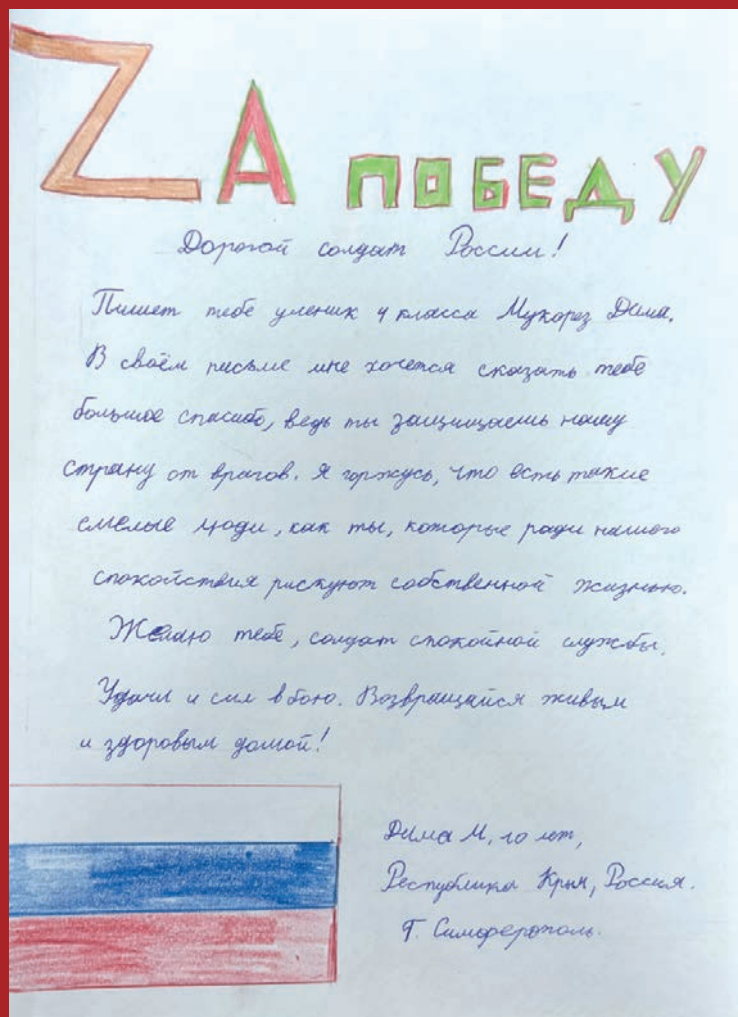 ZА ПОБЕДУ
Дорогой солдат России!
Пишет тебе ученик 4 класса Мукорез Дима.
В своём письме мне хочется сказать тебе
большое спасибо, ведь ты защищаешь нашу
страну от врагов. Я горжусь, что есть такие
смелые люди, как ты, которые ради нашего
спокойствия рискуют собственной жизнью.
Желаю тебе, солдат спокойной службы.
Удачи и сил в бою. Возвращайся живым
и здоровым домой!
Дима М, 10 лет,
Республика Крым, Россия.
Г. Симферополь.